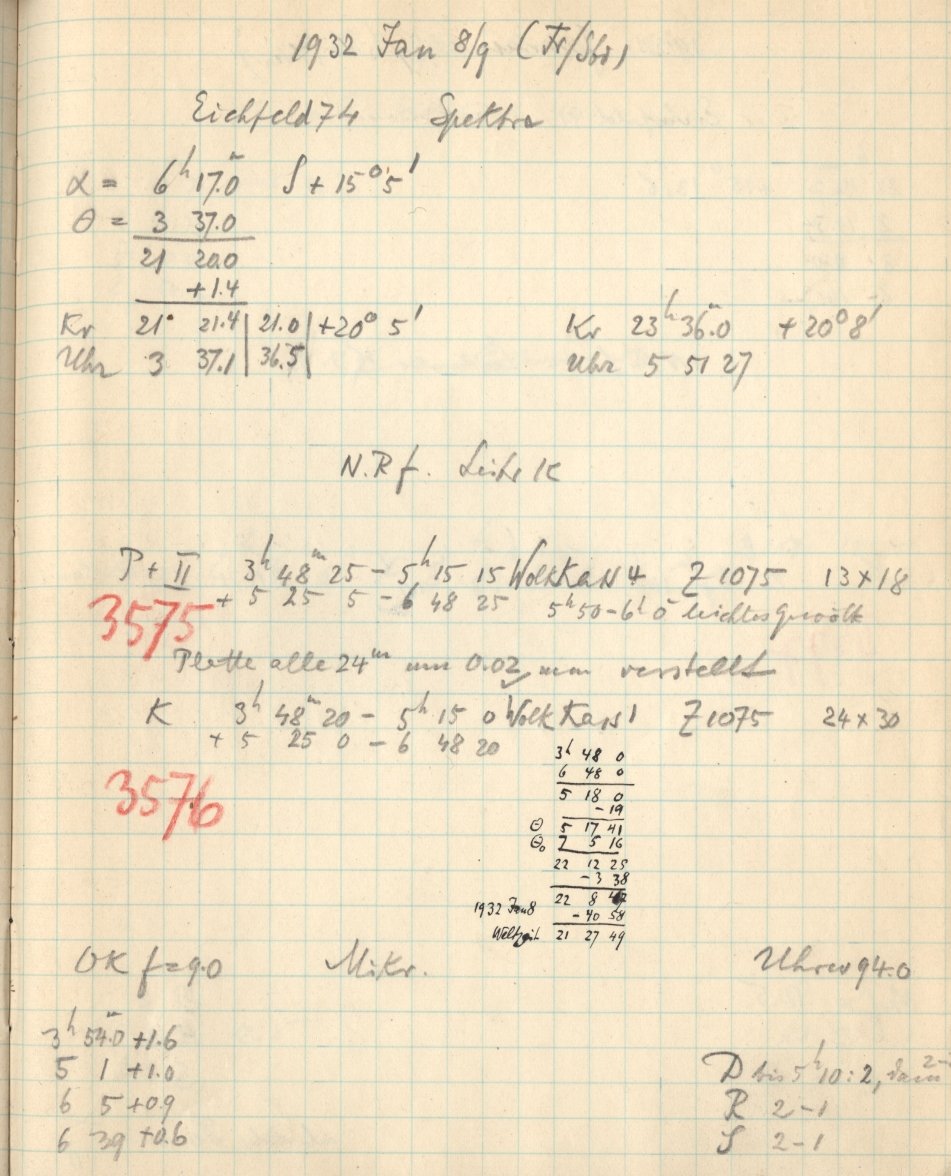 1932 Jan 8/9 (Fr/Sbd)
Eichfeld 74 Spektra
α = 6h 17.0m δ + 15° 5'
θ = 3 37.0
21 20.0
+1.4
Kr 21 21.4 | 21.0 | +20° 5' Kr 23h 36.0m +20° 8'
Uhr 3 37.1 | 36.5 | Uhr 5 51 27
N.R f. Leitr K
P + II 3h 48m 25 - 5h 15 15 Wolk Kass 4 Z 1075 13 × 18
+ 5 25 5 - 6 48 25 5h 50 - 6h 0 leichtes Gewölk
3575
Platte alle 24m um 0.02 mm verstellt
K 3h 48m 20 - 5h 15 0 Wolk Kass 1 Z 1075 24 × 30
+ 5 25 0 - 6 48 20
3576
3h 48 0
6 48 0
5 18 0
- 19
θ 5 17 41
θ₀ 7 5 16
22 12 25
- 3 38
1932 Jan 8 22 8 47
- 40 58
Weltzeit 21 27 49
OK f = 9.0 Mikr. Uhrw 94.0
3h 54.0m +1.6
5 1 +1.0
6 5 +0.9
6 39 +0.6
D bis 5h 10: 2, dann 2-
R 2-1
S 2-1